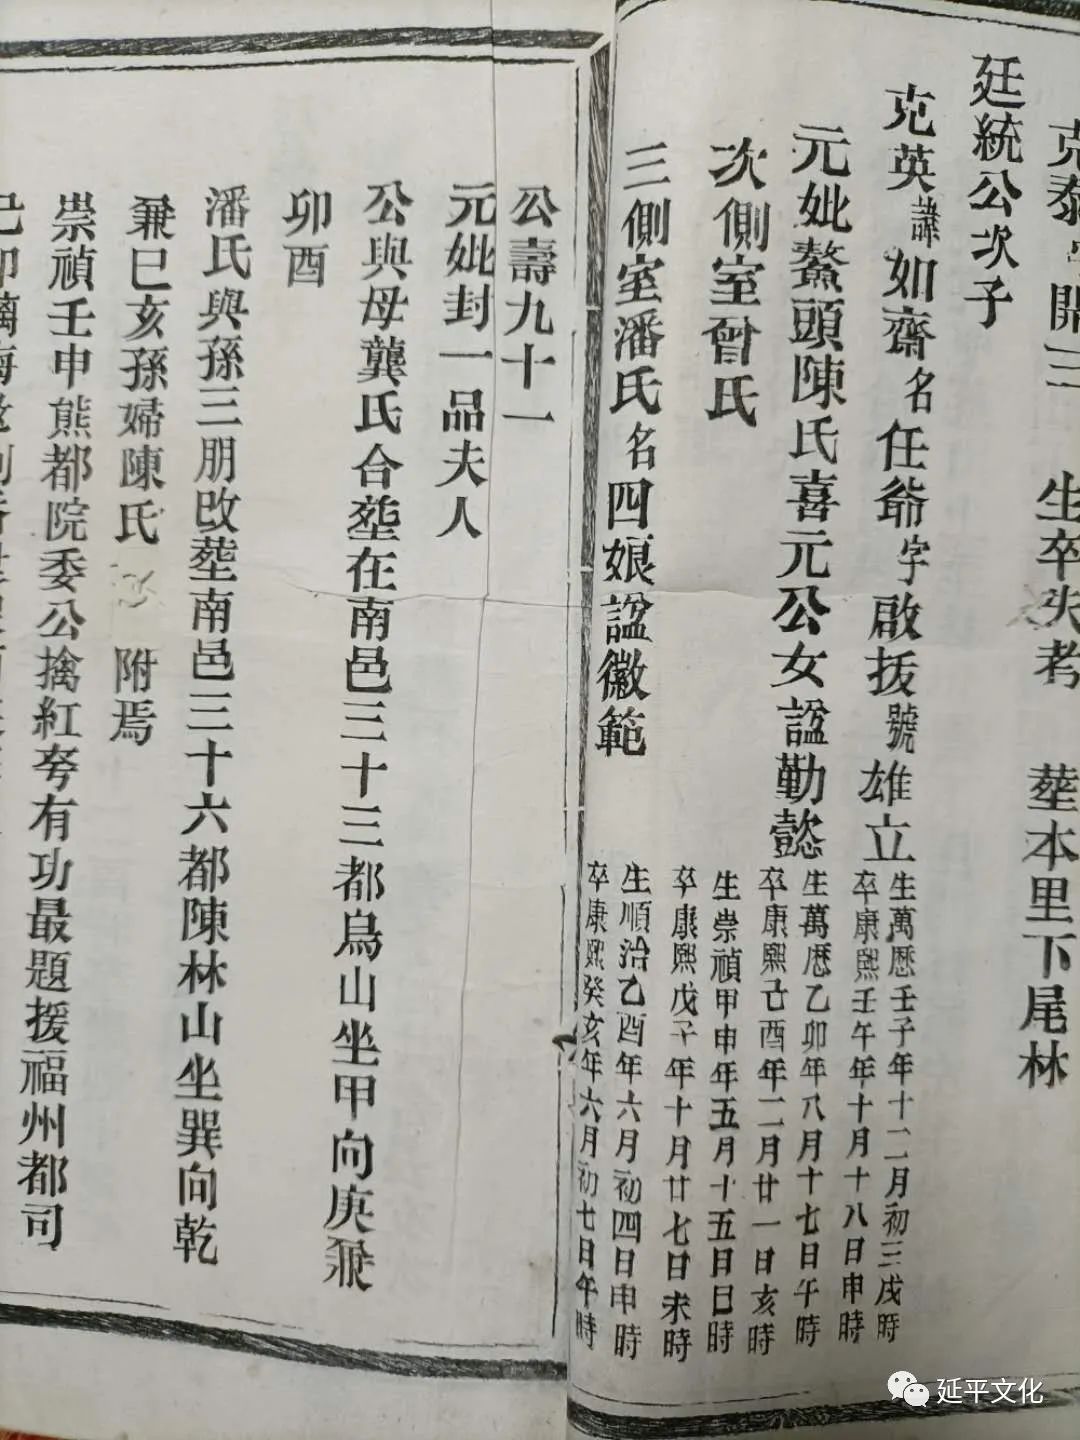 克泰 開三 生卒失考 塟本里下尾林
廷統公次子
克英諱如齋名任爺字啟拔號雄立 生萬歷壬子年十二月初三戌時
卒康熙壬午年十月十八日申時
元妣鰲頭陳氏喜元公女諡勤懿 生萬歷乙卯年八月十七日午時
卒康熙己酉年二月廿一日亥時
次側室曾氏 生崇禎甲申年五月十五日巳時
卒康熙戊子年十月廿七日未時
三側室潘氏名四娘諡徽範 生順治乙酉年六月初四日申時
卒康熙癸亥年六月初七日午時
公壽九十一
元妣封一品夫人
公與母龔氏合塟在南邑三十三都烏山坐甲向庚兼
卯酉
潘氏與孫三朋改塟南邑三十六都陳林山坐巽向乾
兼巳亥孫婦陳氏 附焉
崇禎壬申熊都院委公擒紅夸有功最題援福州都司
延平文化